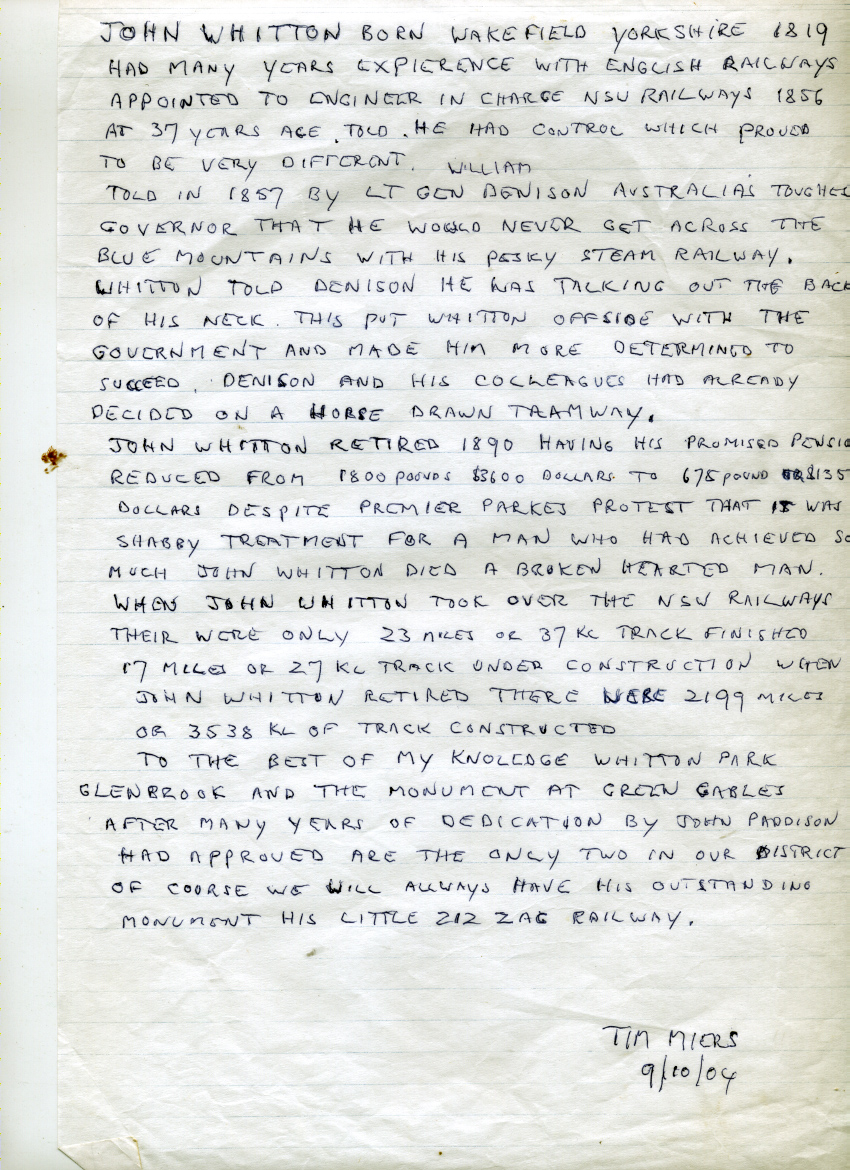 JOHN WHITTON BORN WAKEFIELD YORKSHIRE 1819
HAD MANY YEARS EXPIERENCE WITH ENGLISH RAILWAYS
APPOINTED TO ENGINEER IN CHARGE NSW RAILWAYS 1856
AT 37 YEARS AGE, TOLD. HE HAD CONTROL WHICH PROVED
TO BE VERY DIFFERENT.
WILLIAM
TOLD IN 1857 BY LT GEN DENISON AUSTRALIA'S TOUGHES
GOVERNOR THAT HE WOULD NEVER GET ACROSS THE
BLUE MOUNTAINS WITH HIS PESKY STEAM RAILWAY.
WHITTON TOLD DENISON HE WAS TALKING OUT THE BACK
OF HIS NECK. THIS PUT WHITTON OFFSIDE WITH THE
GOVERNMENT AND MADE HIM MORE DETERMINED TO
SUCCEED. DENISON AND HIS COLLEAGUES HAD ALREADY
DECIDED ON A HORSE DRAWN TRAMWAY.
JOHN WHITTON RETIRED 1890 HAVING HIS PROMISED PENSIO
REDUCED FROM 1800 POUNDS $3600 DOLLARS TO 675 POUND OR $135
DOLLARS DESPITE PREMIER PARKES PROTEST THAT IT WAS
SHABBY TREATMENT FOR A MAN WHO HAD ACHIEVED SO
MUCH JOHN WHITTON DIED A BROKEN HEARTED MAN.
WHEN JOHN WHITTON TOOK OVER THE NSW RAILWAYS
THEIR WERE ONLY 23 MILES OR 37 KL TRACK FINISHED
17 MILES OR 27 KL TRACK UNDER CONSTRUCTION WHEN
JOHN WHITTON RETIRED THERE WERE 2199 MILES
OR 3538 KL OF TRACK CONSTRUCTED
TO THE BEST OF MY KNOLEDGE WHITTON PARK
GLENBROOK AND THE MONUMENT AT GREEN GABLES
AFTER MANY YEARS OF DEDICATION BY JOHN PADDISON
HAD APPROVED ARE THE ONLY TWO IN OUR DISTRICT
OF COORSE WE WILL ALLWAYS HAVE HIS OUTSTANDING
MONUMENT HIS LITTLE ZIZ ZAG RAILWAY.
TIM MIERS
9/10/04